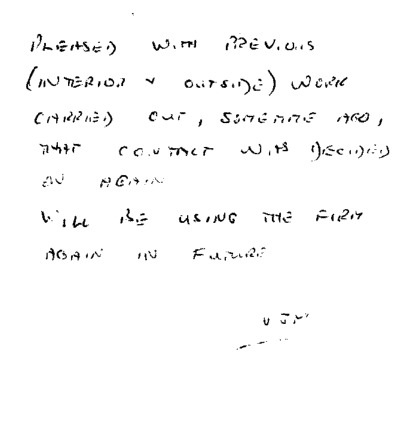 PLEASED WITH PREVIOUS
(INTERIOR & OUTSIDE) WORK
CARRIED OUT, SOMETIME AGO,
THAT CONTACT WAS DECIDED
ON AGAIN
WILL BE USING THE FIRM
AGAIN IN FUTURE